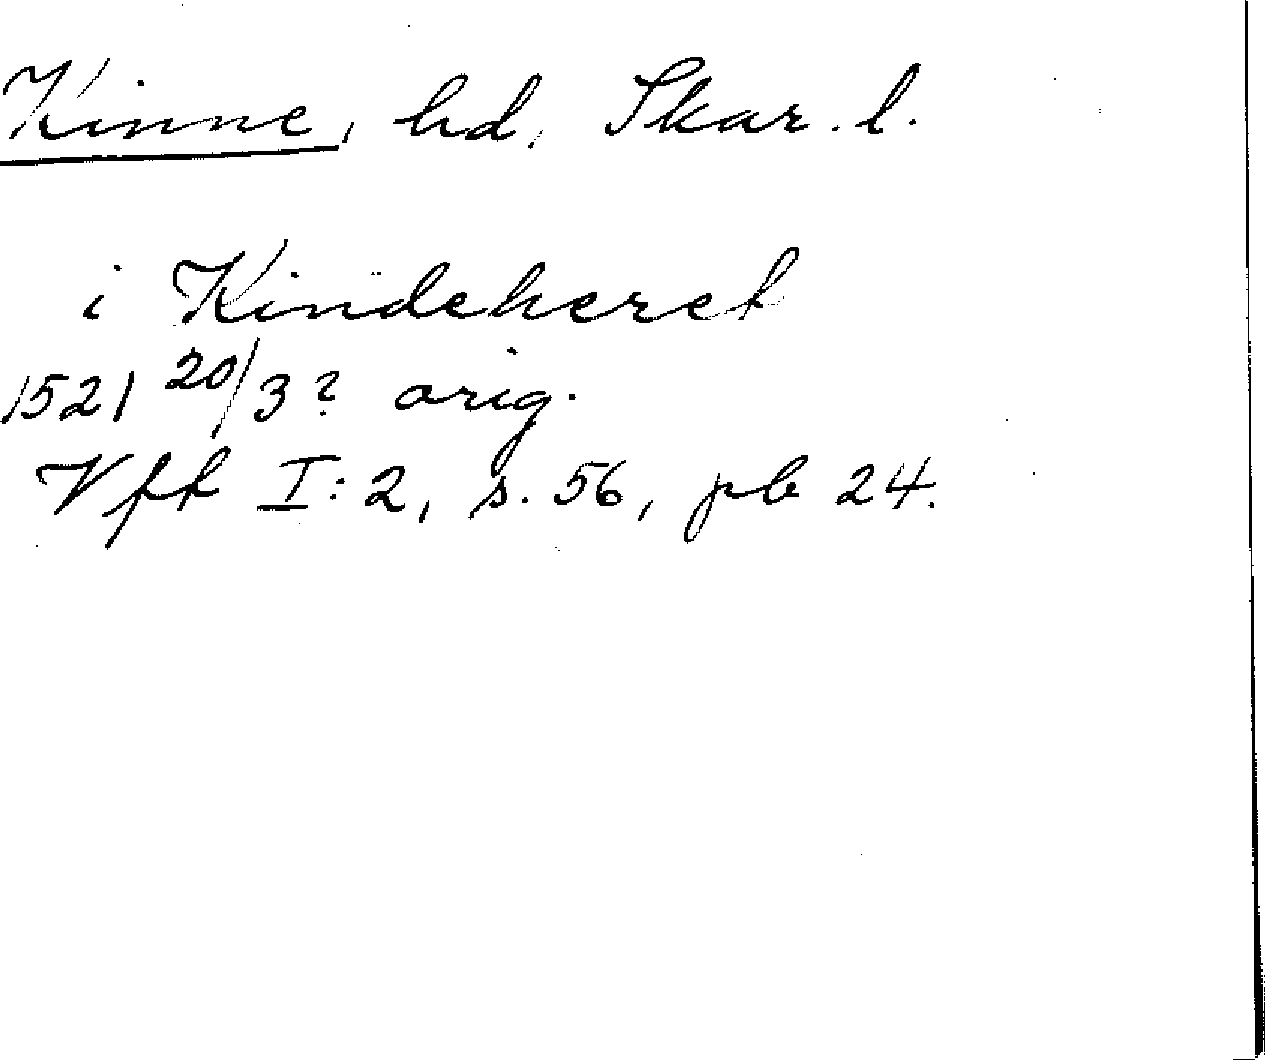 Kinne, hd, Skar. l.
i Kindeheret
1521 20/3? orig.
Vff I:2, s. 56, pb 24.